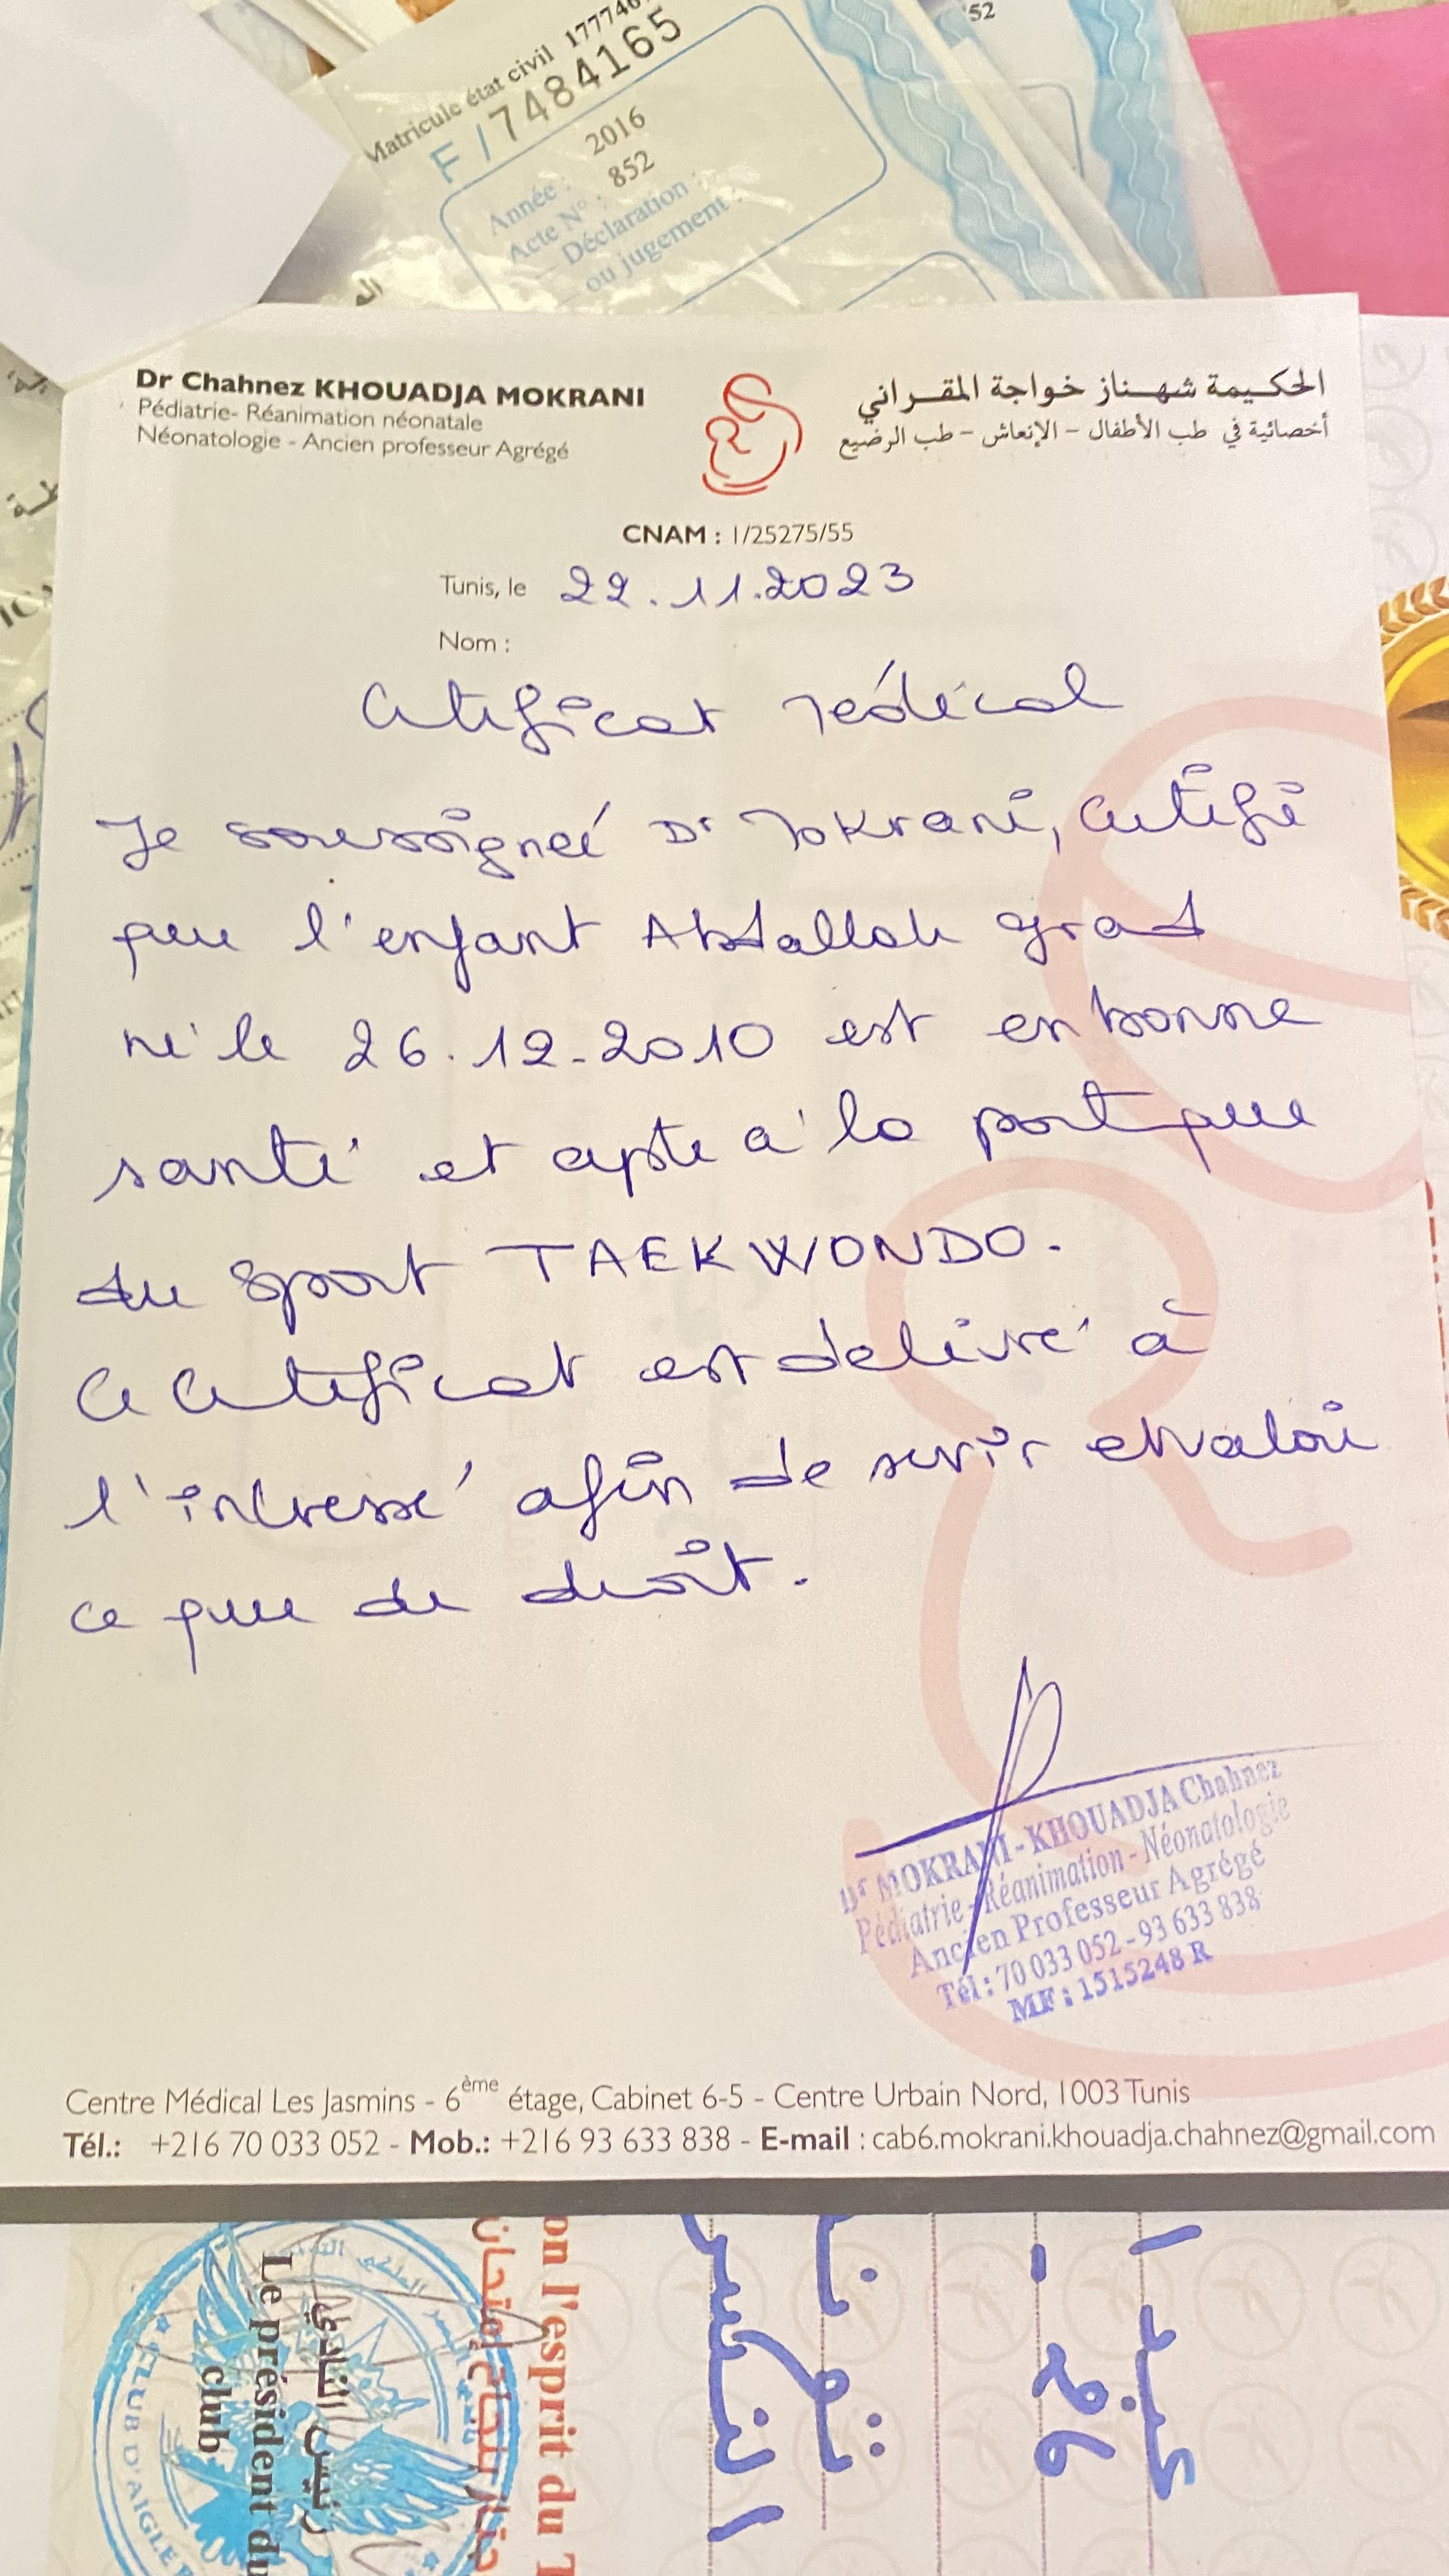 Matricule état civil 177746
F/7484165
Année : 2016
Acte N° : 852
Déclaration :
ou jugement :
'52
Dr Chahnez KHOUADJA MOKRANI
Pédiatrie- Réanimation néonatale
Néonatologie - Ancien professeur Agrégé
الحكيمة شهناز خواجة المقراني
أخصائية في طب الأطفال - الإنعاش - طب الرضيع
CNAM : 1/25275/55
Tunis, le 22.11.2023
Nom :
Certificat Médical
Je soussigneé Dr Mokrani, certifie
que l'enfant Abdallah grad
né le 26.12-2010 est en bonne
santé et apte à la pratique
du sport TAEKWONDO.
Ce certificat est delivré à
l'intressé afin de servir et valoir
ce que de droit.
Dr MOKRANI - KHOUADJA Chahnez
Pédiatrie - Réanimation - Néonatologie
Ancien Professeur Agrégé
Tél : 70 033 052 - 93 633 838
MF : 1515248 R
Centre Médical Les Jasmins - 6ème étage, Cabinet 6-5 - Centre Urbain Nord, 1003 Tunis
Tél.: +216 70 033 052 - Mob.: +216 93 633 838 - E-mail : cab6.mokrani.khouadja.chahnez@gmail.com
on l'esprit du T
رئيس النادي
Le président du
club
CLUB D'AIGLE
26